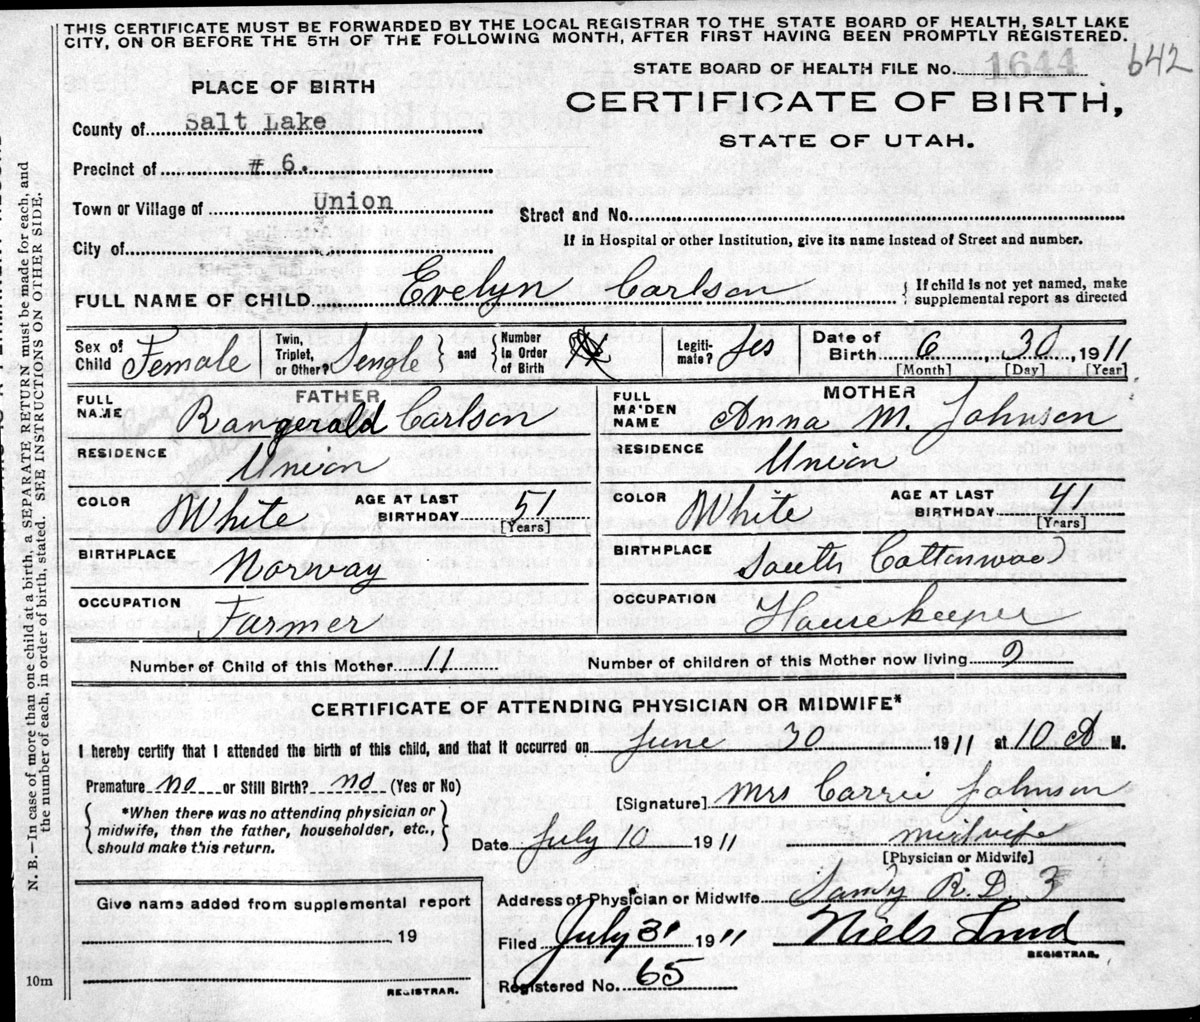 THIS CERTIFICATE MUST BE FORWARDED BY THE LOCAL REGISTRAR TO THE STATE BOARD OF HEALTH, SALT LAKE
CITY, ON OR BEFORE THE 5TH OF THE FOLLOWING MONTH, AFTER FIRST HAVING BEEN PROMPTLY REGISTERED.
642
STATE BOARD OF HEALTH FILE No. 1644
CERTIFICATE OF BIRTH,
STATE OF UTAH.
PLACE OF BIRTH
County of Salt Lake
Precinct of # 6.
Town or Village of Union
Street and No.
City of
If in Hospital or other Institution, give its name instead of Street and number.
FULL NAME OF CHILD Evelyn Carlson { If child is not yet named, make
supplemental report as directed
Sex of Child Female Twin, Triplet, or Other? Sengle } and { Number in Order of Birth Legiti-mate? Yes Date of Birth 6, 30, 1911
[Month] [Day] [Year]
FATHER MOTHER
FULL NAME Rangerald Carlson FULL MAIDEN NAME Anna M. Johnson
RESIDENCE Union RESIDENCE Union
COLOR White AGE AT LAST BIRTHDAY 51 [Years] COLOR White AGE AT LAST BIRTHDAY 41 [Years]
BIRTHPLACE Norway BIRTHPLACE South Cottonwood
OCCUPATION Farmer OCCUPATION Housekeeper
Number of Child of this Mother 11 Number of children of this Mother now living 9
CERTIFICATE OF ATTENDING PHYSICIAN OR MIDWIFE*
I hereby certify that I attended the birth of this child, and that it occurred on June 30 1911 at 10 A M.
Premature no or Still Birth? no (Yes or No)
[Signature] Mrs Carrie Johnson
{ *When there was no attending physician or
midwife, then the father, householder, etc.,
should make this return. }
Date July 10 1911 midwife
[Physician or Midwife]
Give name added from supplemental report
19
REGISTRAR.
Address of Physician or Midwife Sandy R. D. 3
Filed July 31 1911 Niels Lind
REGISTRAR.
Registered No. 65
N. B.—In case of more than one child at a birth, a SEPARATE RETURN must be made for each, and
the number of each, in order of birth, stated. SEE INSTRUCTIONS ON OTHER SIDE.
10m